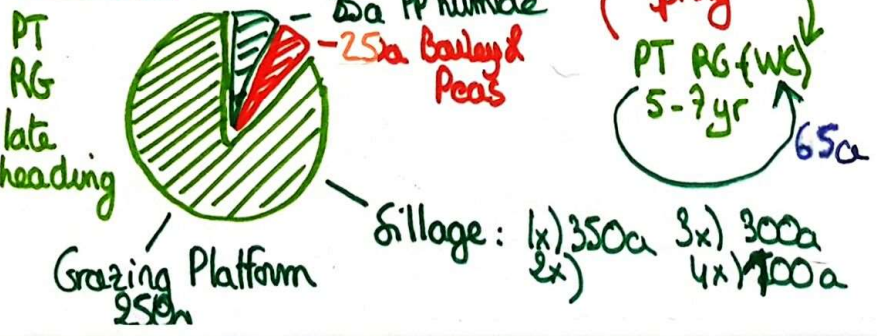 PT
RG
late
heading
PP humide
25a Barley &
Peas
PT RG+(WC)
5-7yr
65a
Sillage: 1x) 350a 3x) 300a
2x) 4x) 100a
Grazing Platform